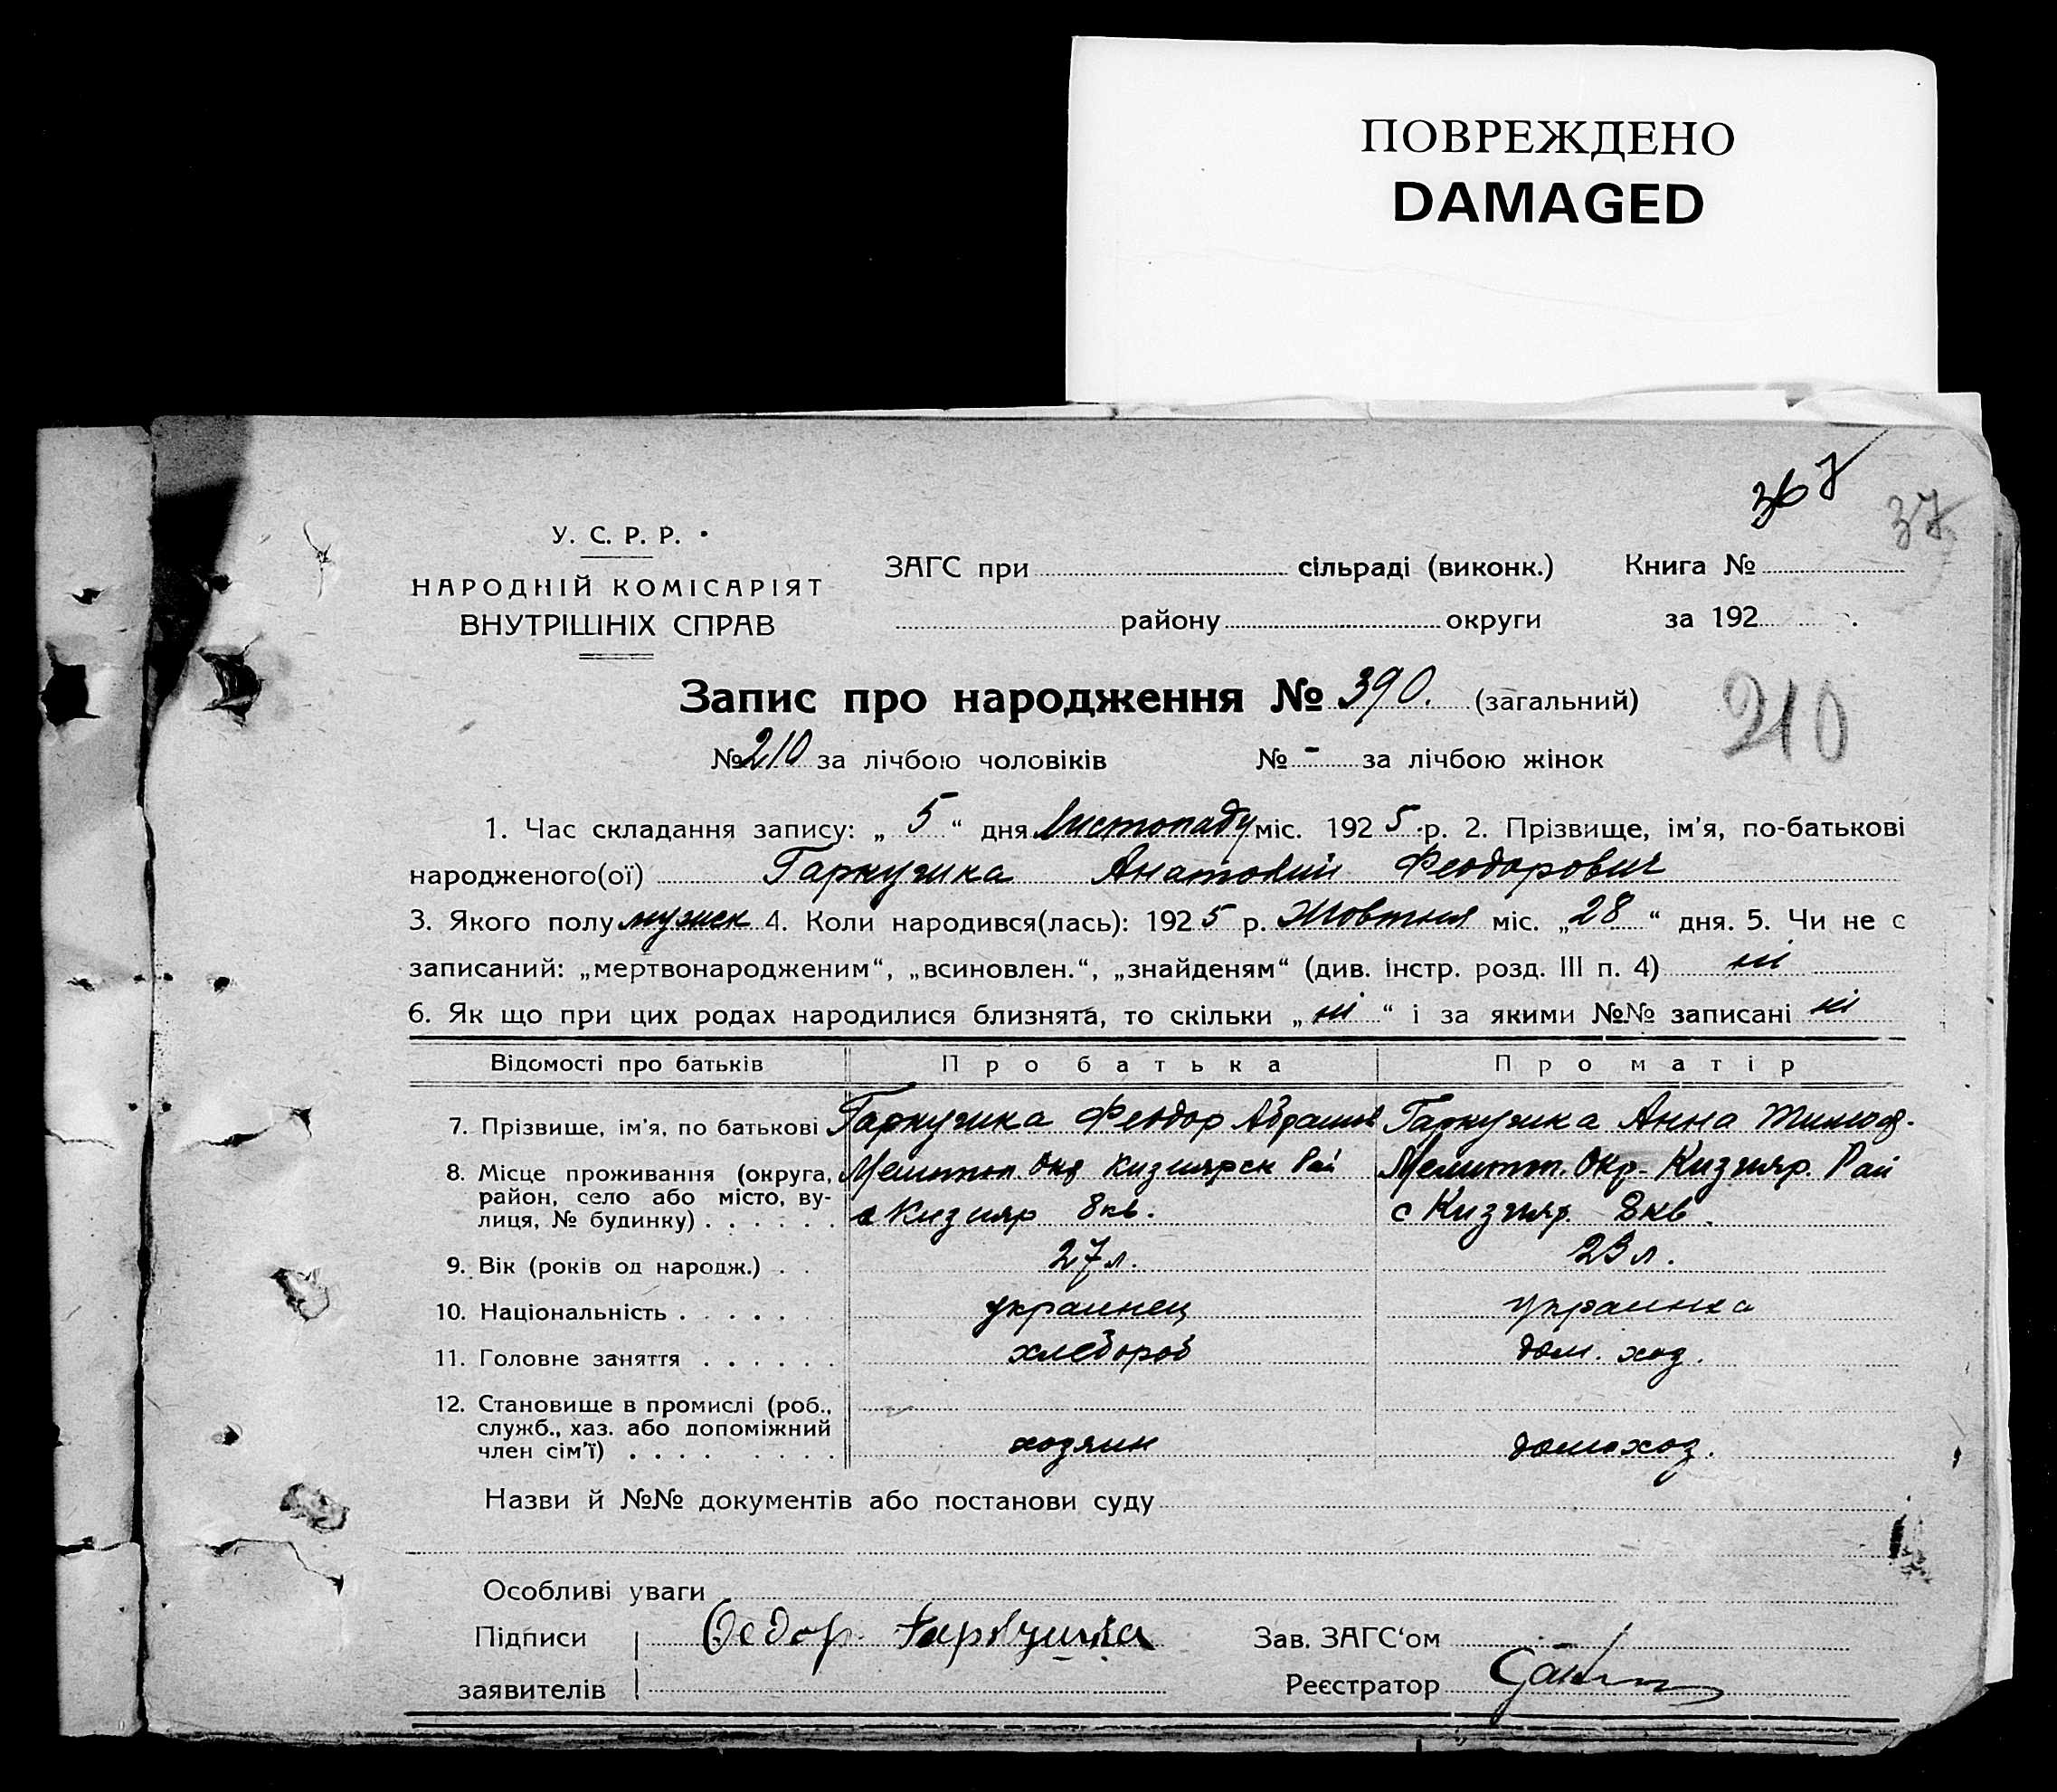 ПОВРЕЖДЕНО
DAMAGED
367
37
У. С. Р. Р.
НАРОДНІЙ КОМІСАРІЯТ
ВНУТРІШНІХ СПРАВ
ЗАГС при сільраді (виконк.) Книга №
району округи за 192 .
Запис про народження № 390. (загальний)
210
№ 210 за лічбою чоловіків № - за лічбою жінок
1. Час складання запису: „ 5 “ дня Листопаду міс. 1925 р. 2. Прізвище, ім'я, по-батькові
народженого(ої) Гаркушка Анатолий Феодорович
3. Якого полу мужск 4. Коли народився(лась): 1925 р. Жовтня міс. „28“ дня. 5. Чи не є
записаний: „мертвонародженим“, „всиновлен.“, „знайденям“ (див. інстр. розд. III п. 4) ні
6. Як що при цих родах народилися близнята, то скільки „ ні “ і за якими №№ записані ні
Відомості про батьків Про батька Про матір
7. Прізвище, ім'я, по батькові Гаркушка Феодор Абрамов Гаркушка Анна Тимоф.
8. Місце проживання (округа, Мелитоп. Окр Кизиярск Рай Мелитоп. Окр. Кизияр. Рай
район, село або місто, ву-
лиця, № будинку) с Кизияр 8кв. с Кизияр. 8кв.
9. Вік (років од народж.) 27 л. 23 л.
10. Національність украинец украинка
11. Головне заняття хлебороб дом. хоз.
12. Становище в промислі (роб.,
служб., хаз. або допоміжний
член сім'ї) хозяин домохоз.
Назви й №№ документів або постанови суду
Особливі уваги
Підписи Федор Гаркушка Зав. ЗАГС‘ом
заявителів Реєстратор